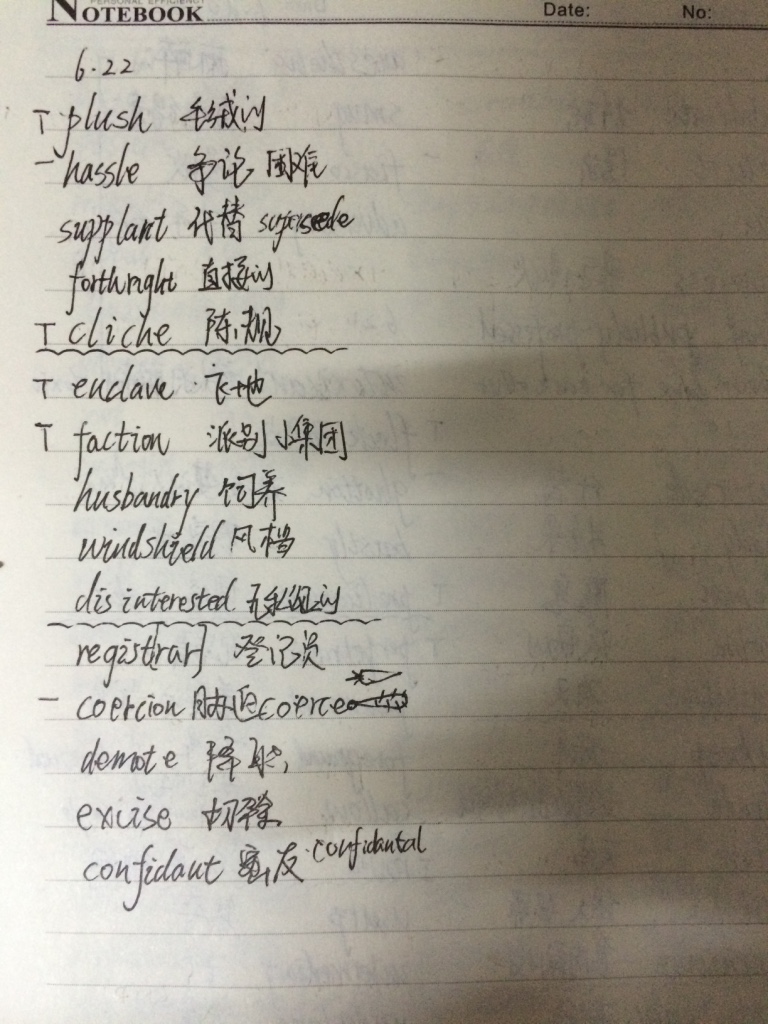 PERSONAL EFFICIENCY
NOTEBOOK Date: No:
6.22
T plush 毛绒的
- hassle 争论 困难
supplant 代替 supersede
forthright 直接的
T cliche 陈规
T enclave 飞地
T faction 派别 小集团
husbandry 饲养
windshield 风档
disinterested 无私的
registrar] 登记员
- coercion 胁迫 coerce
demote 降职
excise 切除
confidant 密友 confidantal